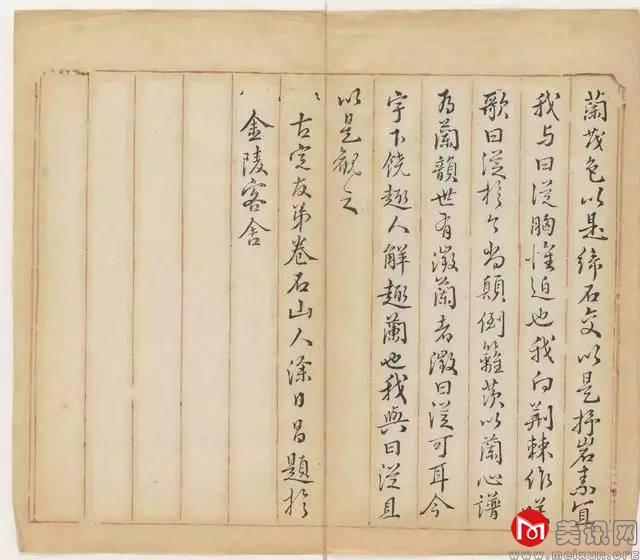 蘭茂色以是締石交以是抒岩素宜
我与曰從胸懷迫也我向荆棘作
歌曰從於今尚顛倒籬茨以蘭心譜
為蘭韻世有澂蘭者澂曰從可耳今
宇下饒趣人解趣蘭也我與曰從且
以是觀之
古完友弟卷石山人涂日昌題於
金陵客舍
美讯网
www.meixun.org